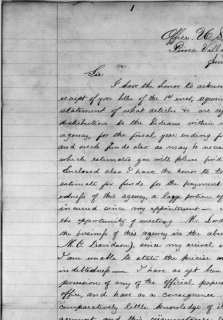 1
Office U.S.
Pima Villa
Sir
I have the honor to acknow
receipt of your letter of the 1st inst, requiri
statement of what articles &c are
distribution to the Indians within
agency for the fiscal year ending
and such funds also as may be
which estimates you will please find
Enclosed also I have the honor to
estimate for funds for the payment
edness of this agency, a large portion of
incurred since my appointment
the opportunity of meeting Mr.
the premises of this agency in the
M.O. Davidson), since my arrival
I am unable to state the precise
indebtedness — I have as yet
possession of any of the official papers
office, and have as a consequence
comparatively little knowledge of
and this circumstance